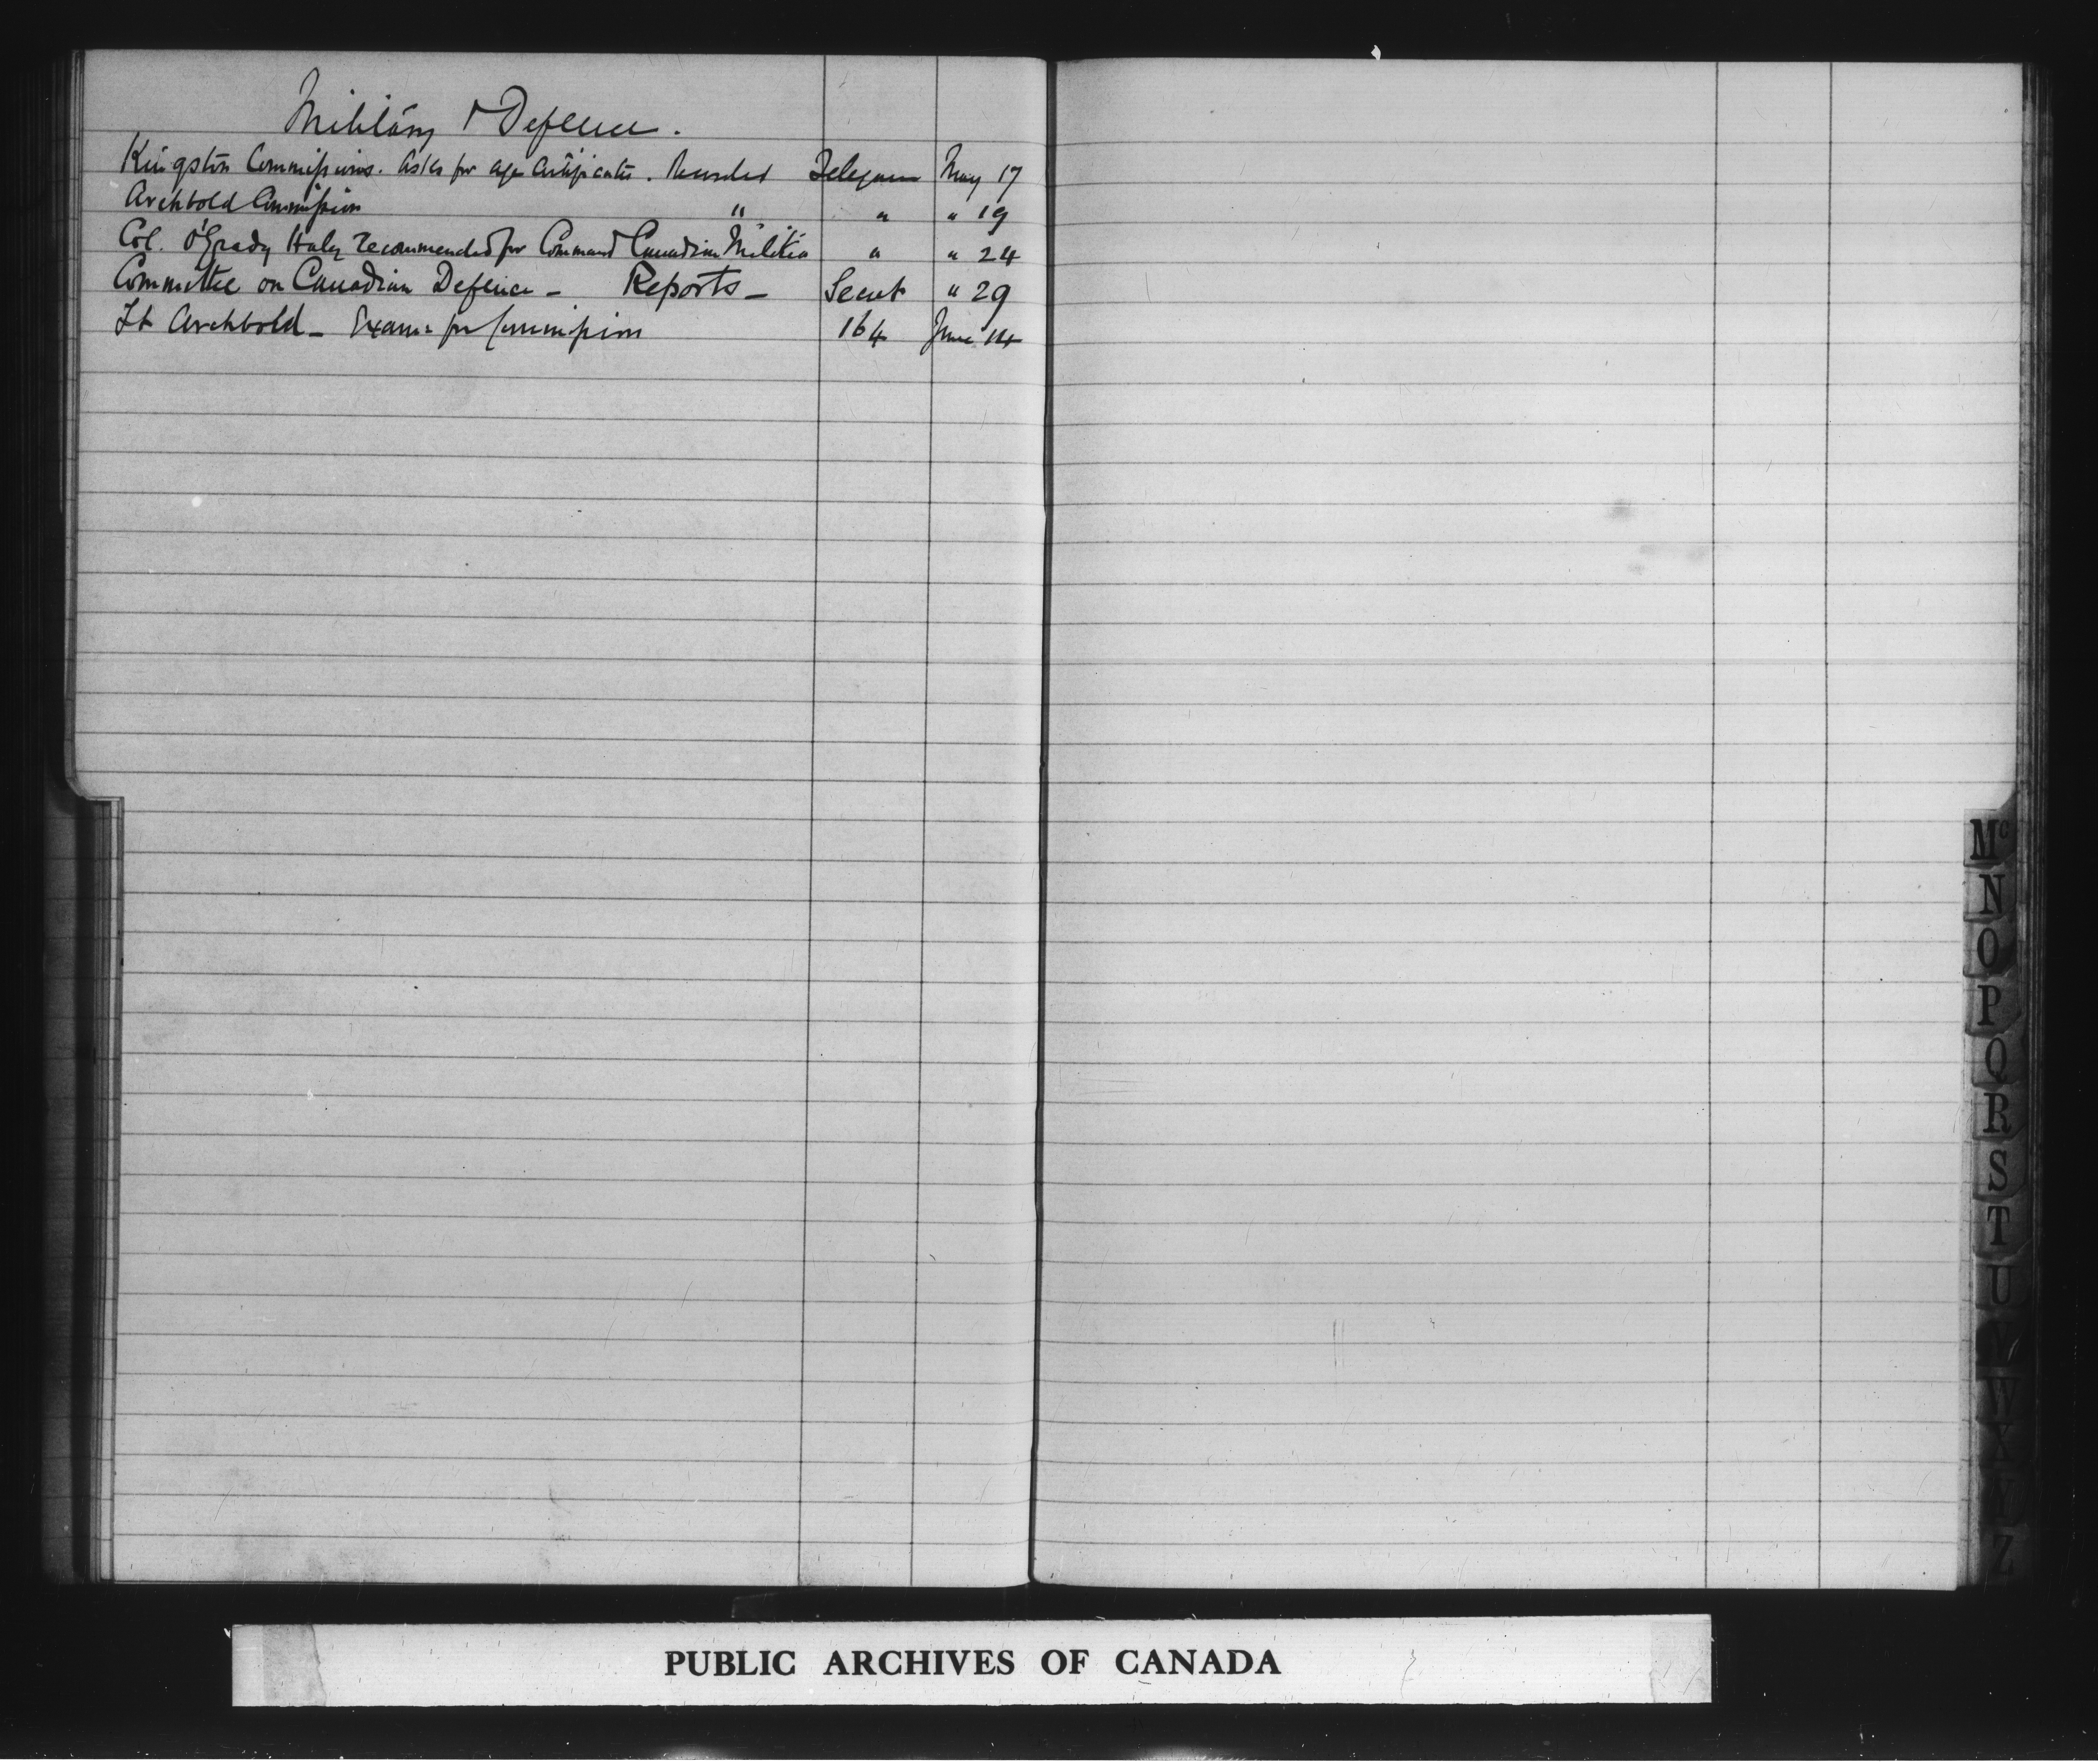 Military & Defence.
Kingston Commissions. Asks for age certificates. Telegram May 17
Archbold Commission " " " 19
Col. O'Grady Haly recommended for Command Canadian Militia " " 24
Committee on Canadian Defence - Reports - Secret " 29
Lt Archbold - Exam: for Commission 164 June 14
Mc
N
O
P
Q
R
S
T
U
V
W
X
Y
Z
PUBLIC ARCHIVES OF CANADA